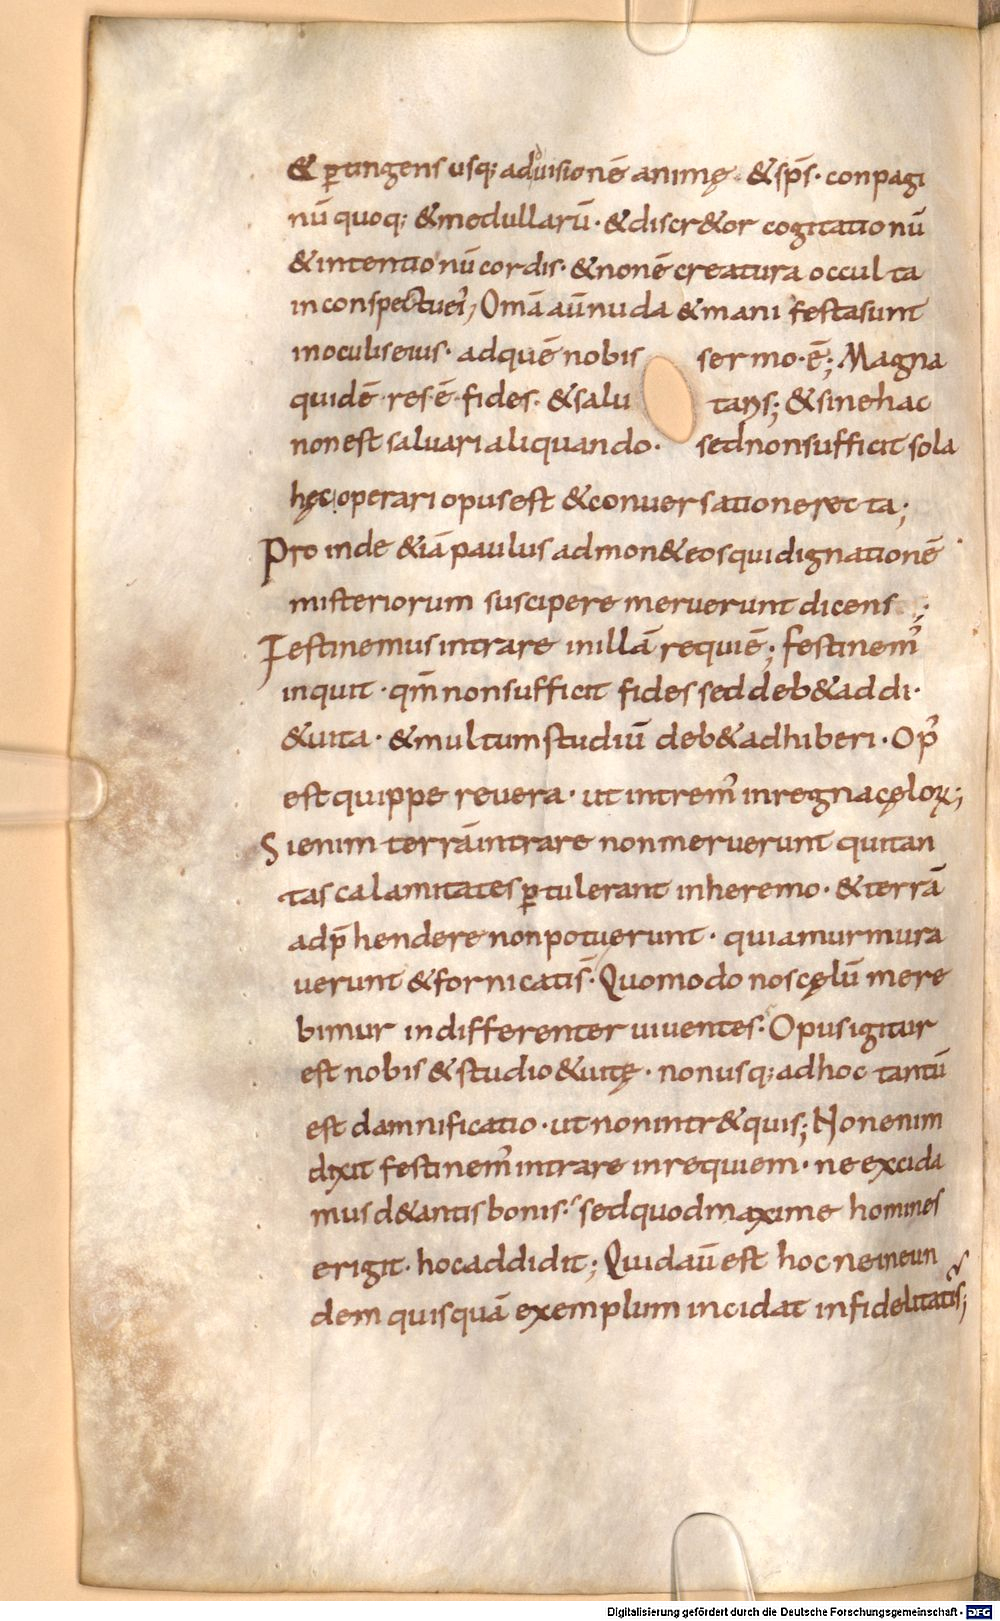 & ꝑtingens usq; ad diuisionē animę · & sp̄s · conpagi
nū quoq; & medullarū · & discr&or cogitationū
& intentionū cordis · & non ē creatura occulta
in conspectu ei᾽; Om̄a aū nuda & manifesta sunt
in oculis eius · ad quē nobis sermo · ē; Magna
quidē · res · ē · fides · & salutaris; & sine hac
non est saluari aliquando · sed non sufficit sola
hęc operari opus est & conuersatione recta;
Proinde & iā paulus admon& eos qui dignationē
misteriorum suscipere meruerunt dicens;
Festinemus intrare in illā requiē; festinem᾽
inquit · qm̄ non sufficit fides sed deb& addi ·
& uita · & multum studiū deb& adhiberi · Op᾽
est quippe reuera · ut intrem᾽ in regna cęloꝝ;
Si enim terrā intrare non meruerunt qui tan
tas calamitates ꝑtulerant in heremo · & terrā
adp̄hendere non potuerunt · quia murmura
uerunt & fornicati s̄ · Quomodo nos cęlū mere
bimur indifferenter uiuentes · Opus igitur
est nobis & studio & uitę · non usq; ad hoc tantū
est damnificatio · ut non intr& quis; Non enim
dixit festinem᾽ intrare in requiem · ne excida
mus d& antis bonis · sed quod maxime homines
erigit · hoc addidit; Quid aū est hoc ne in eun
dem quisquā exemplum incidat infidelitatis;